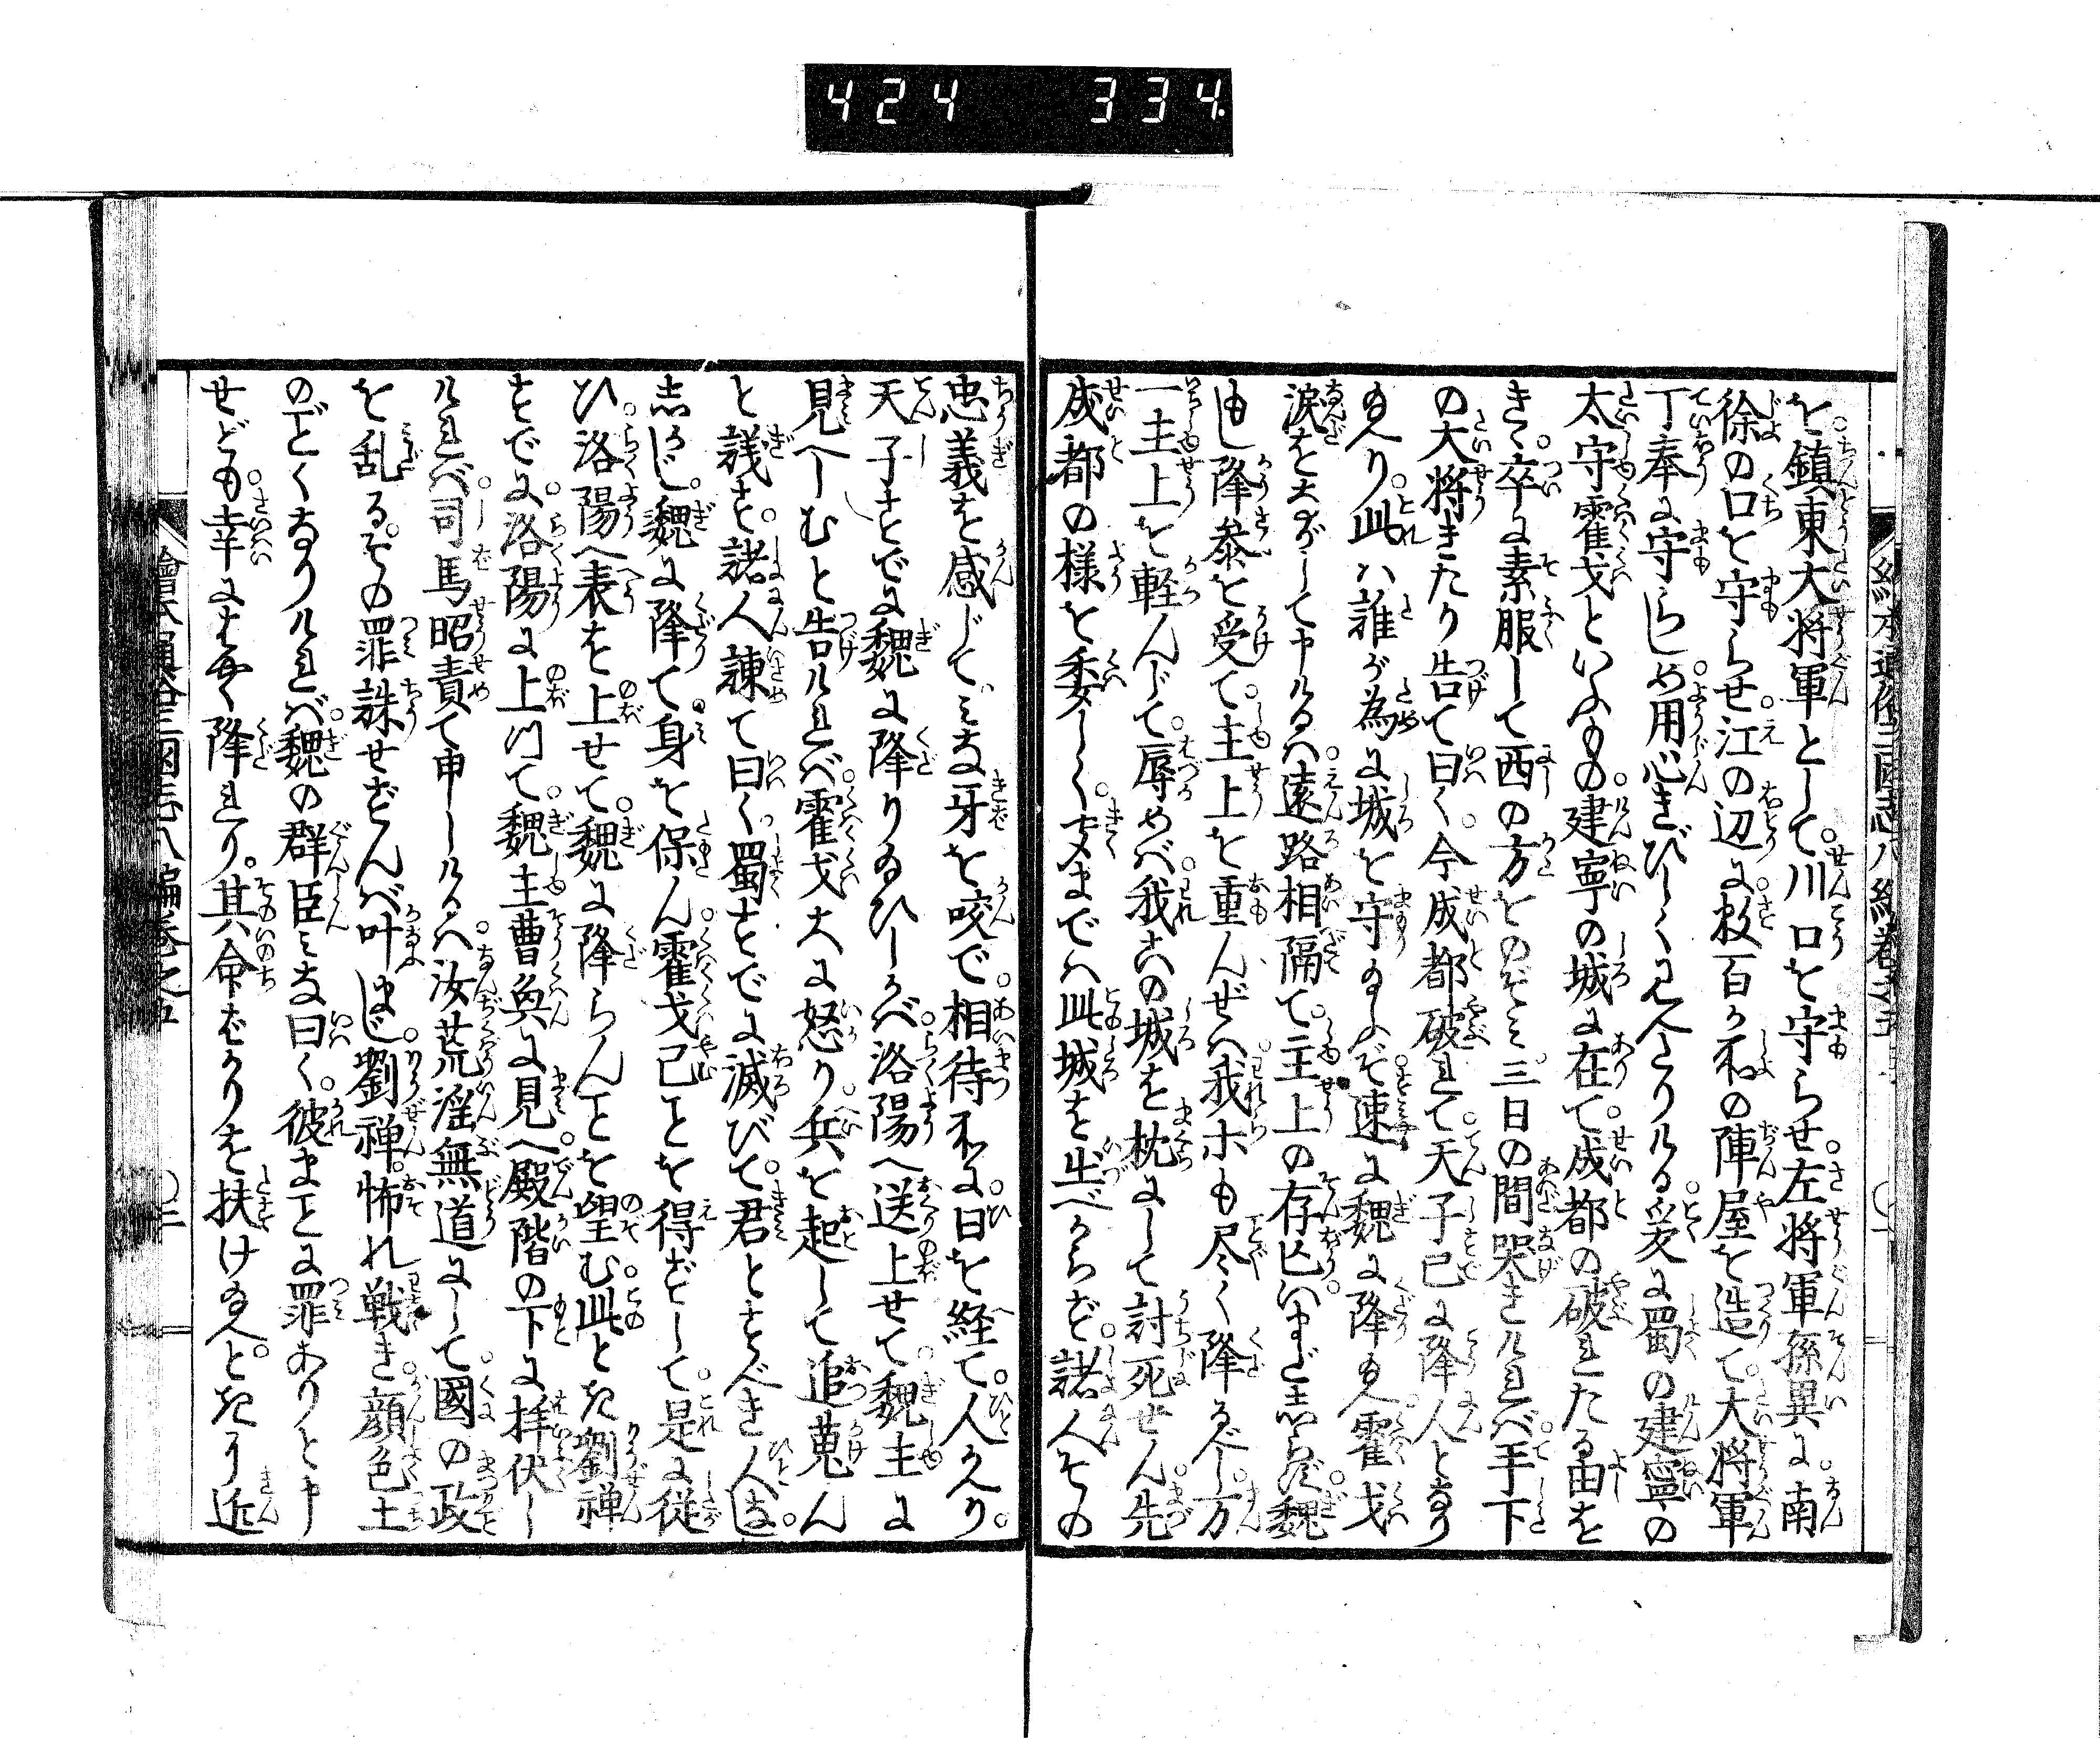 424 334
を鎮東大将軍として。川口を守らせ。左将軍孫異に。南
徐の口を守らせ。江の辺に。数百ヶ所の陣屋を造て。大将軍
丁奉に守らしめ。用心きびしくみえたりける。爰に蜀の建寧の
太守霍戈といふもの。建寧の城に在て。成都の破れたる由を
きゝ。卒に素服して西の方をのぞみ。三日の間哭きければ。手下
の大将きたり告て曰く。今成都破れて。天子已に降人となり
給へり。此は誰が為に城を守り給ふぞ。速に魏に降り給へ。霍戈
涙をながして申けるは。遠路相隔て。主上の存亡いまだ志らず。魏
もし降参を受て。主上を重んぜは。我ホも尽く降るべし。万
一主上を軽んじて。辱めば。我此の城を枕にして討死せん。先
成都の様を委しく。聞までは此城を出べからず。諸人その
忠義を感じて。みな牙を咬で。相待ホに。日を経て。人かへり。
天子すでに魏に降り給ひしかば。洛陽へ送上せて。魏主に
見へしむと告ければ。霍戈大に怒り。兵を起して追蒐ん
と議す。諸人諫て曰く。蜀すでに滅びて。君とすべき人は。
志かじ。魏に降て身を保ん。霍戈已ことを得ずして。是に従
ひ。洛陽へ表を上せて。魏に降らんことを望む。此とき劉禅
すでに。洛陽に上けて。魏主曹奐に見へ。殿階の下に拝伏し
ければ。司馬昭責て申しけるは。汝荒淫無道にして。國の政
を乱る。その罪誅せずんば叶まじ。劉禅。怖れ戦き。顔色土
のごとくなりければ。魏の群臣みな曰く。彼まことに罪ありと申
せども。幸に早く降れり。其命ばかりを扶け給へと。すべり近